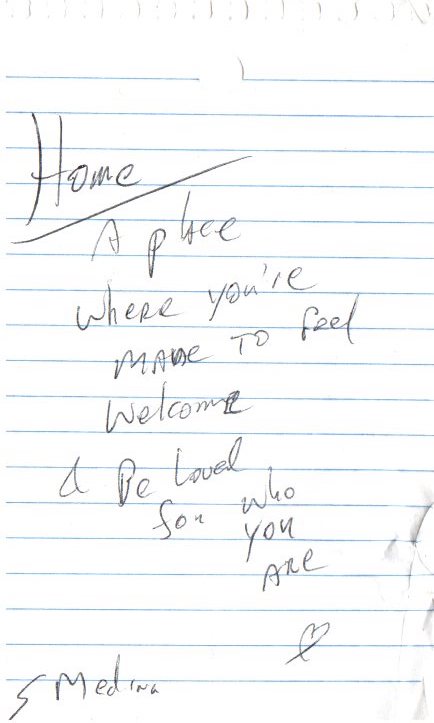 Home
A place
where you're
made to feel
welcome
& Be Loved
for who
you
ARE
S Medina